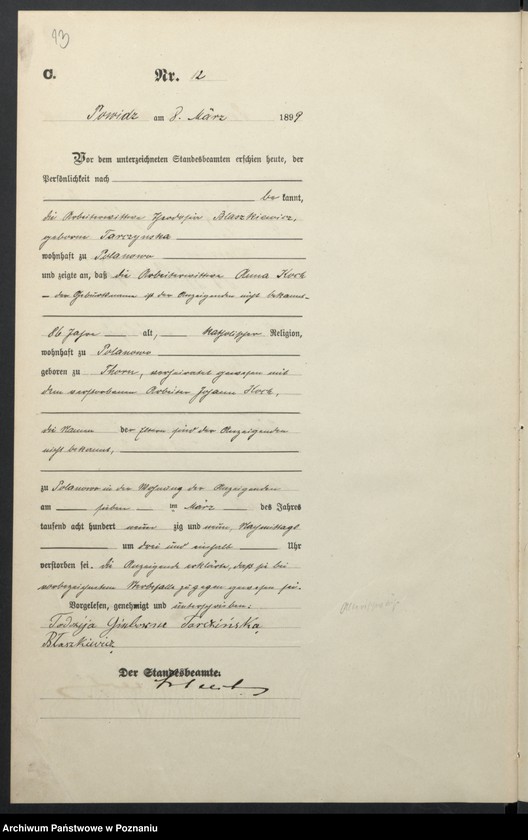 93
C.
Nr. 12
Powidz am 8. März 1899
Vor dem unterzeichneten Standesbeamten erschien heute, der
Persönlichkeit nach
be kannt,
die Arbeiterwittwe Theodosia Blaszkiewicz,
geborne Tarczynska
wohnhaft zu Polanowo
und zeigte an, daß die Arbeiterwittwe Anna Kock
– der Geburtsname ist der Anzeigenden nicht bekannt –
86 Jahre alt, katholischer Religion,
wohnhaft zu Polanowo
geboren zu Thorn, verheirathet gewesen mit
dem verstorbenen Arbeiter Johann Kock,
die Namen der Eltern sind der Anzeigenden
nicht bekannt,
zu Polanowo in der Wohnung der Anzeigenden
am sieben ten März des Jahres
tausend acht hundert neun zig und neun, Nachmittags
um drei und einhalb Uhr
verstorben sei. Die Anzeigende erklärte, daß sie bei
vorbezeichnetem Sterbefalle zugegen gewesen sei.
Vorgelesen, genehmigt und unterschrieben:
Todozija Tarczińska
Błaszkiewicz
Der Standesbeamte.
Archiwum Państwowe w Poznaniu